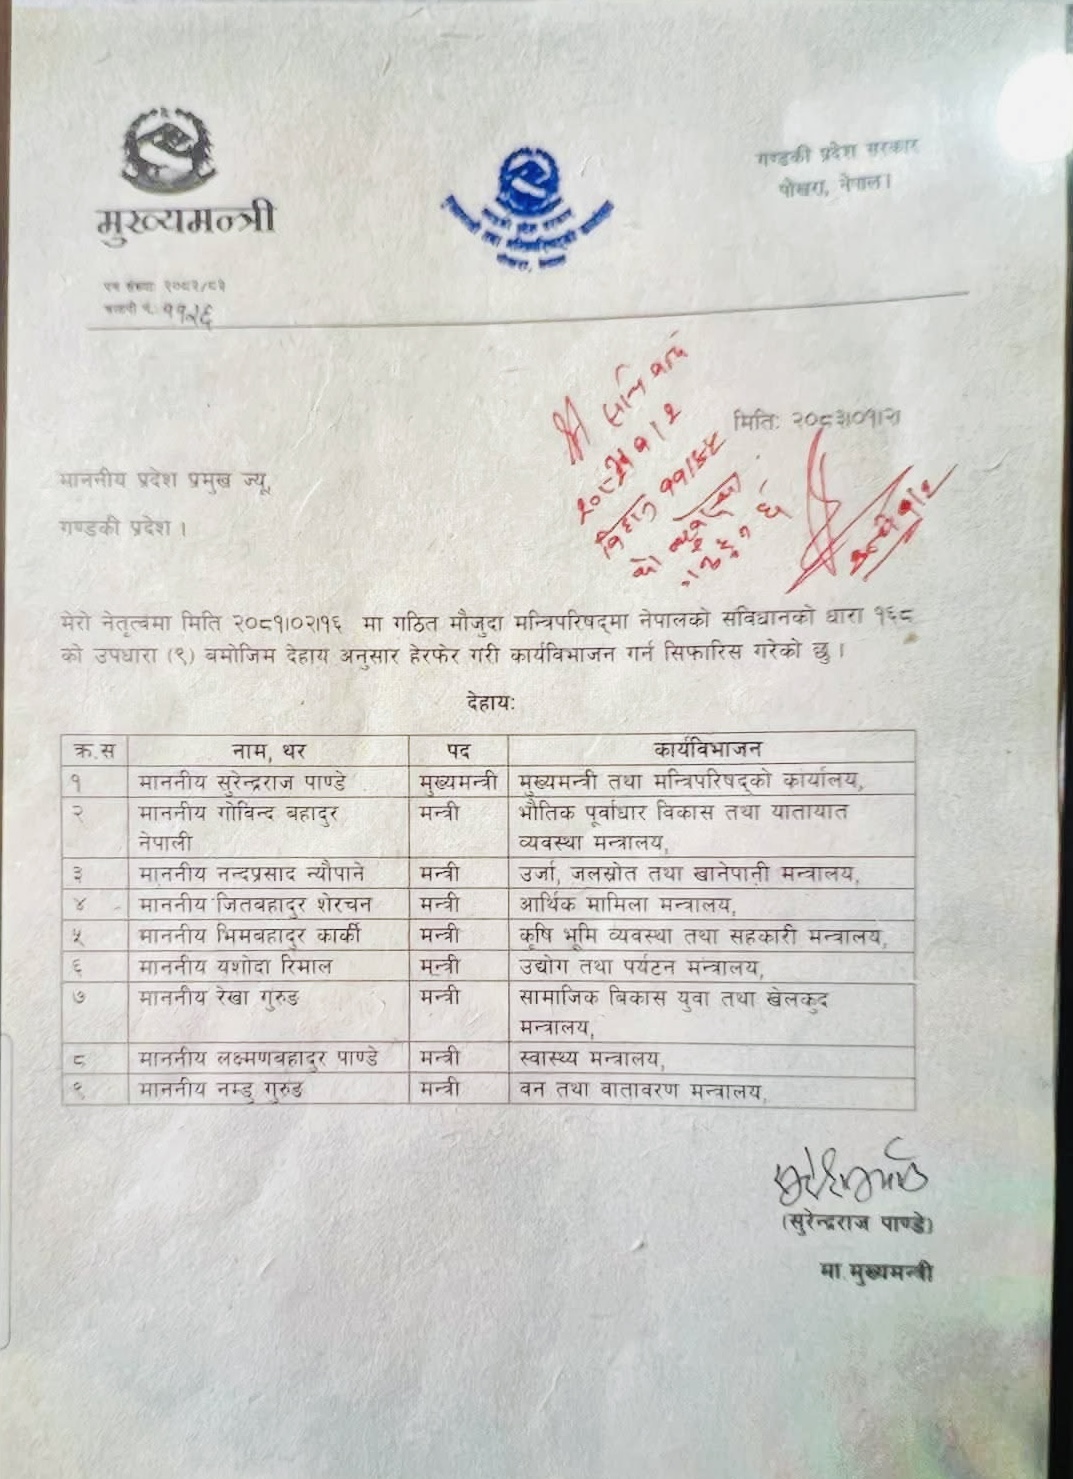 मुख्यमन्त्री
गण्डकी प्रदेश सरकार
पोखरा, नेपाल।
पत्र संख्या २०८२/८३
चलानी नं. ११२६
मितिः २०८३।०१।२
माननीय प्रदेश प्रमुख ज्यू,
गण्डकी प्रदेश ।
मेरो नेतृत्वमा मिति २०८१।०२।१६ मा गठित मौजुदा मन्त्रिपरिषद्‌मा नेपालको संविधानको धारा १६८
को उपधारा (९) बमोजिम देहाय अनुसार हेरफेर गरी कार्यविभाजन गर्न सिफारिस गरेको छु ।
देहायः
क्र.स नाम, थर पद कार्यविभाजन
१ माननीय सुरेन्द्रराज पाण्डे मुख्यमन्त्री मुख्यमन्त्री तथा मन्त्रिपरिषद्को कार्यालय,
२ माननीय गोविन्द बहादुर मन्त्री भौतिक पूर्वाधार विकास तथा यातायात
नेपाली व्यवस्था मन्त्रालय,
३ माननीय नन्दप्रसाद न्यौपाने मन्त्री उर्जा, जलस्रोत तथा खानेपानी मन्त्रालय,
४ माननीय जितबहादुर शेरचन मन्त्री आर्थिक मामिला मन्त्रालय,
५ माननीय भिमबहादुर कार्की मन्त्री कृषि भूमि व्यवस्था तथा सहकारी मन्त्रालय,
६ माननीय यशोदा रिमाल मन्त्री उद्योग तथा पर्यटन मन्त्रालय,
७ माननीय रेखा गुरुङ मन्त्री सामाजिक बिकास युवा तथा खेलकुद
मन्त्रालय,
८ माननीय लक्ष्मणबहादुर पाण्डे मन्त्री स्वास्थ्य मन्त्रालय,
९ माननीय नम्डु गुरुङ मन्त्री वन तथा वातावरण मन्त्रालय,
(सुरेन्द्रराज पाण्डे)
मा.मुख्यमन्त्री